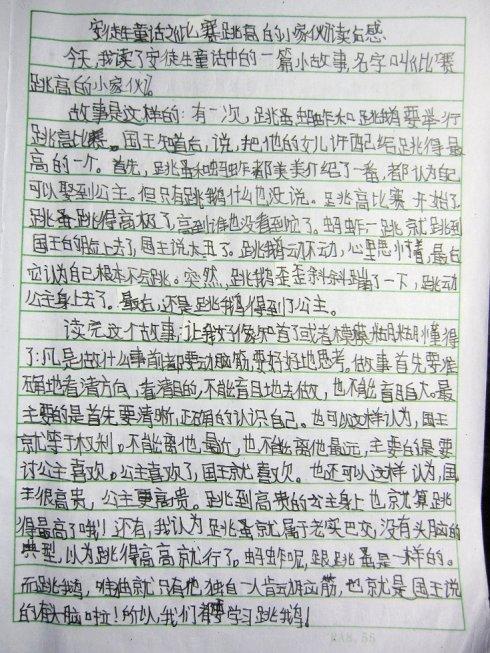 安徒生童话之《比赛跳高的小家伙》读后感
今天,我读了安徒生童话中的一篇小故事,名字叫《比赛
跳高的小家伙》
故事是这样的:有一次,跳蚤蚱蜢和跳鹅要举行
跳高比赛。国王知道后,说,把他的女儿许配给跳得最
高的一个。首先,跳蚤和蚱蜢都美美介绍了一番,都认为自己
可以娶到公主。但只有跳鹅什么也没说。跳高比赛开始了,
跳蚤跳得高极了,高到谁也没看到它了。蚱蜢一跳就跳到
国王的脸上去了,国王说太丑了。跳鹅动怀动,心里思忖着,最后
它认为自己根本不会跳。突然,跳鹅歪歪斜斜蹦了一下,跳动
公主身上去了。最后,还是跳鹅得到了公主。
读完这个故事,让我好像知道了或者模模糊糊懂得
了:凡是做什么事前都要动脑筋,要好好地思考。做事首先要准
确地看清方向,看清目的,不能盲目地去做,也不能盲目自大。最
主要的是首先要清晰,正确的认识自己。也可以这样认为,国王
就等于权利。不能离他最近,也不能离他最远,主要的是要
讨公主喜欢。公主喜欢了,国王就喜欢。也还可以这样认为,国
王很高贵,公主更高贵。跳到高贵的公主身上也就算跳
得最高了哦!还有,我认为跳蚤就属于老实巴交,没有头脑的
典型,以为跳得高高就行了。蚱蜢呢,跟跳蚤是一样的。
而跳鹅,唯独就只有他独自一人肯动脑筋,也就是国王说
的有头脑啦!所以,我们都要学习跳鹅!